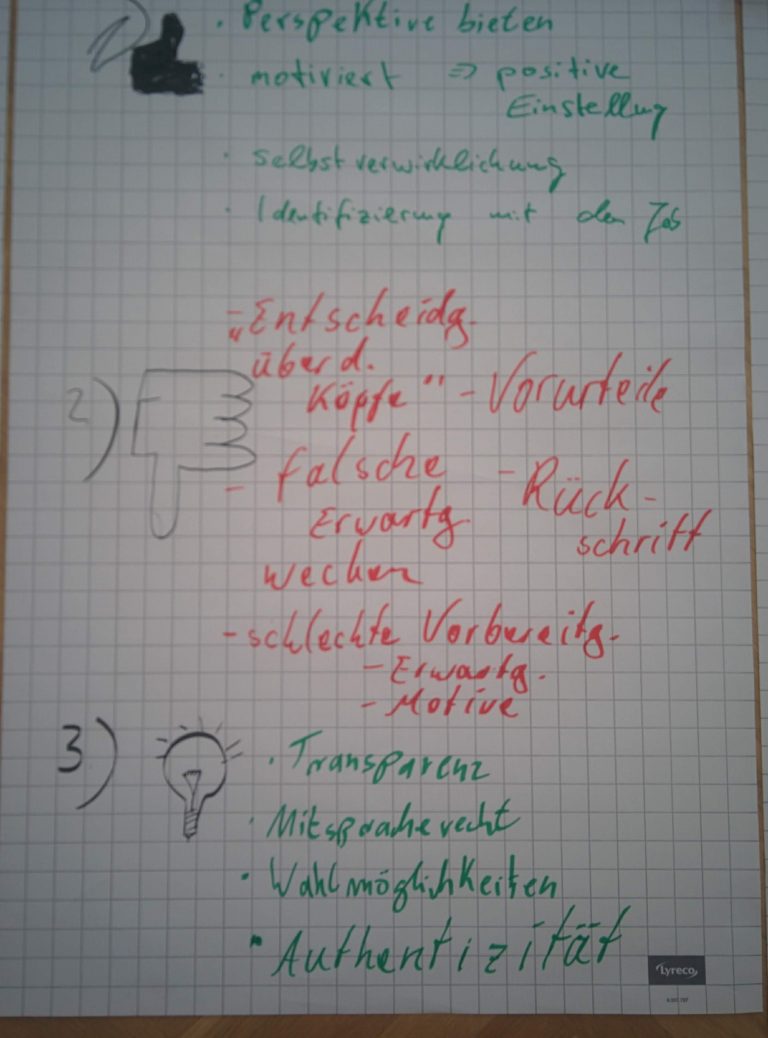 · Perspektive bieten
· motiviert ⇒ positive
Einstellung
· Selbstverwirklichung
· Identifizierung mit den Job
- „Entscheidg.
über d.
2) Köpfe" - Vorurteile
- falsche - Rück-
Erwartg. schritt
wecken
- schlechte Vorbereitg.
- Erwartg.
- Motive
3) · Transparenz
· Mitspracherecht
· Wahlmöglichkeiten
· Authentizität
Lyreco